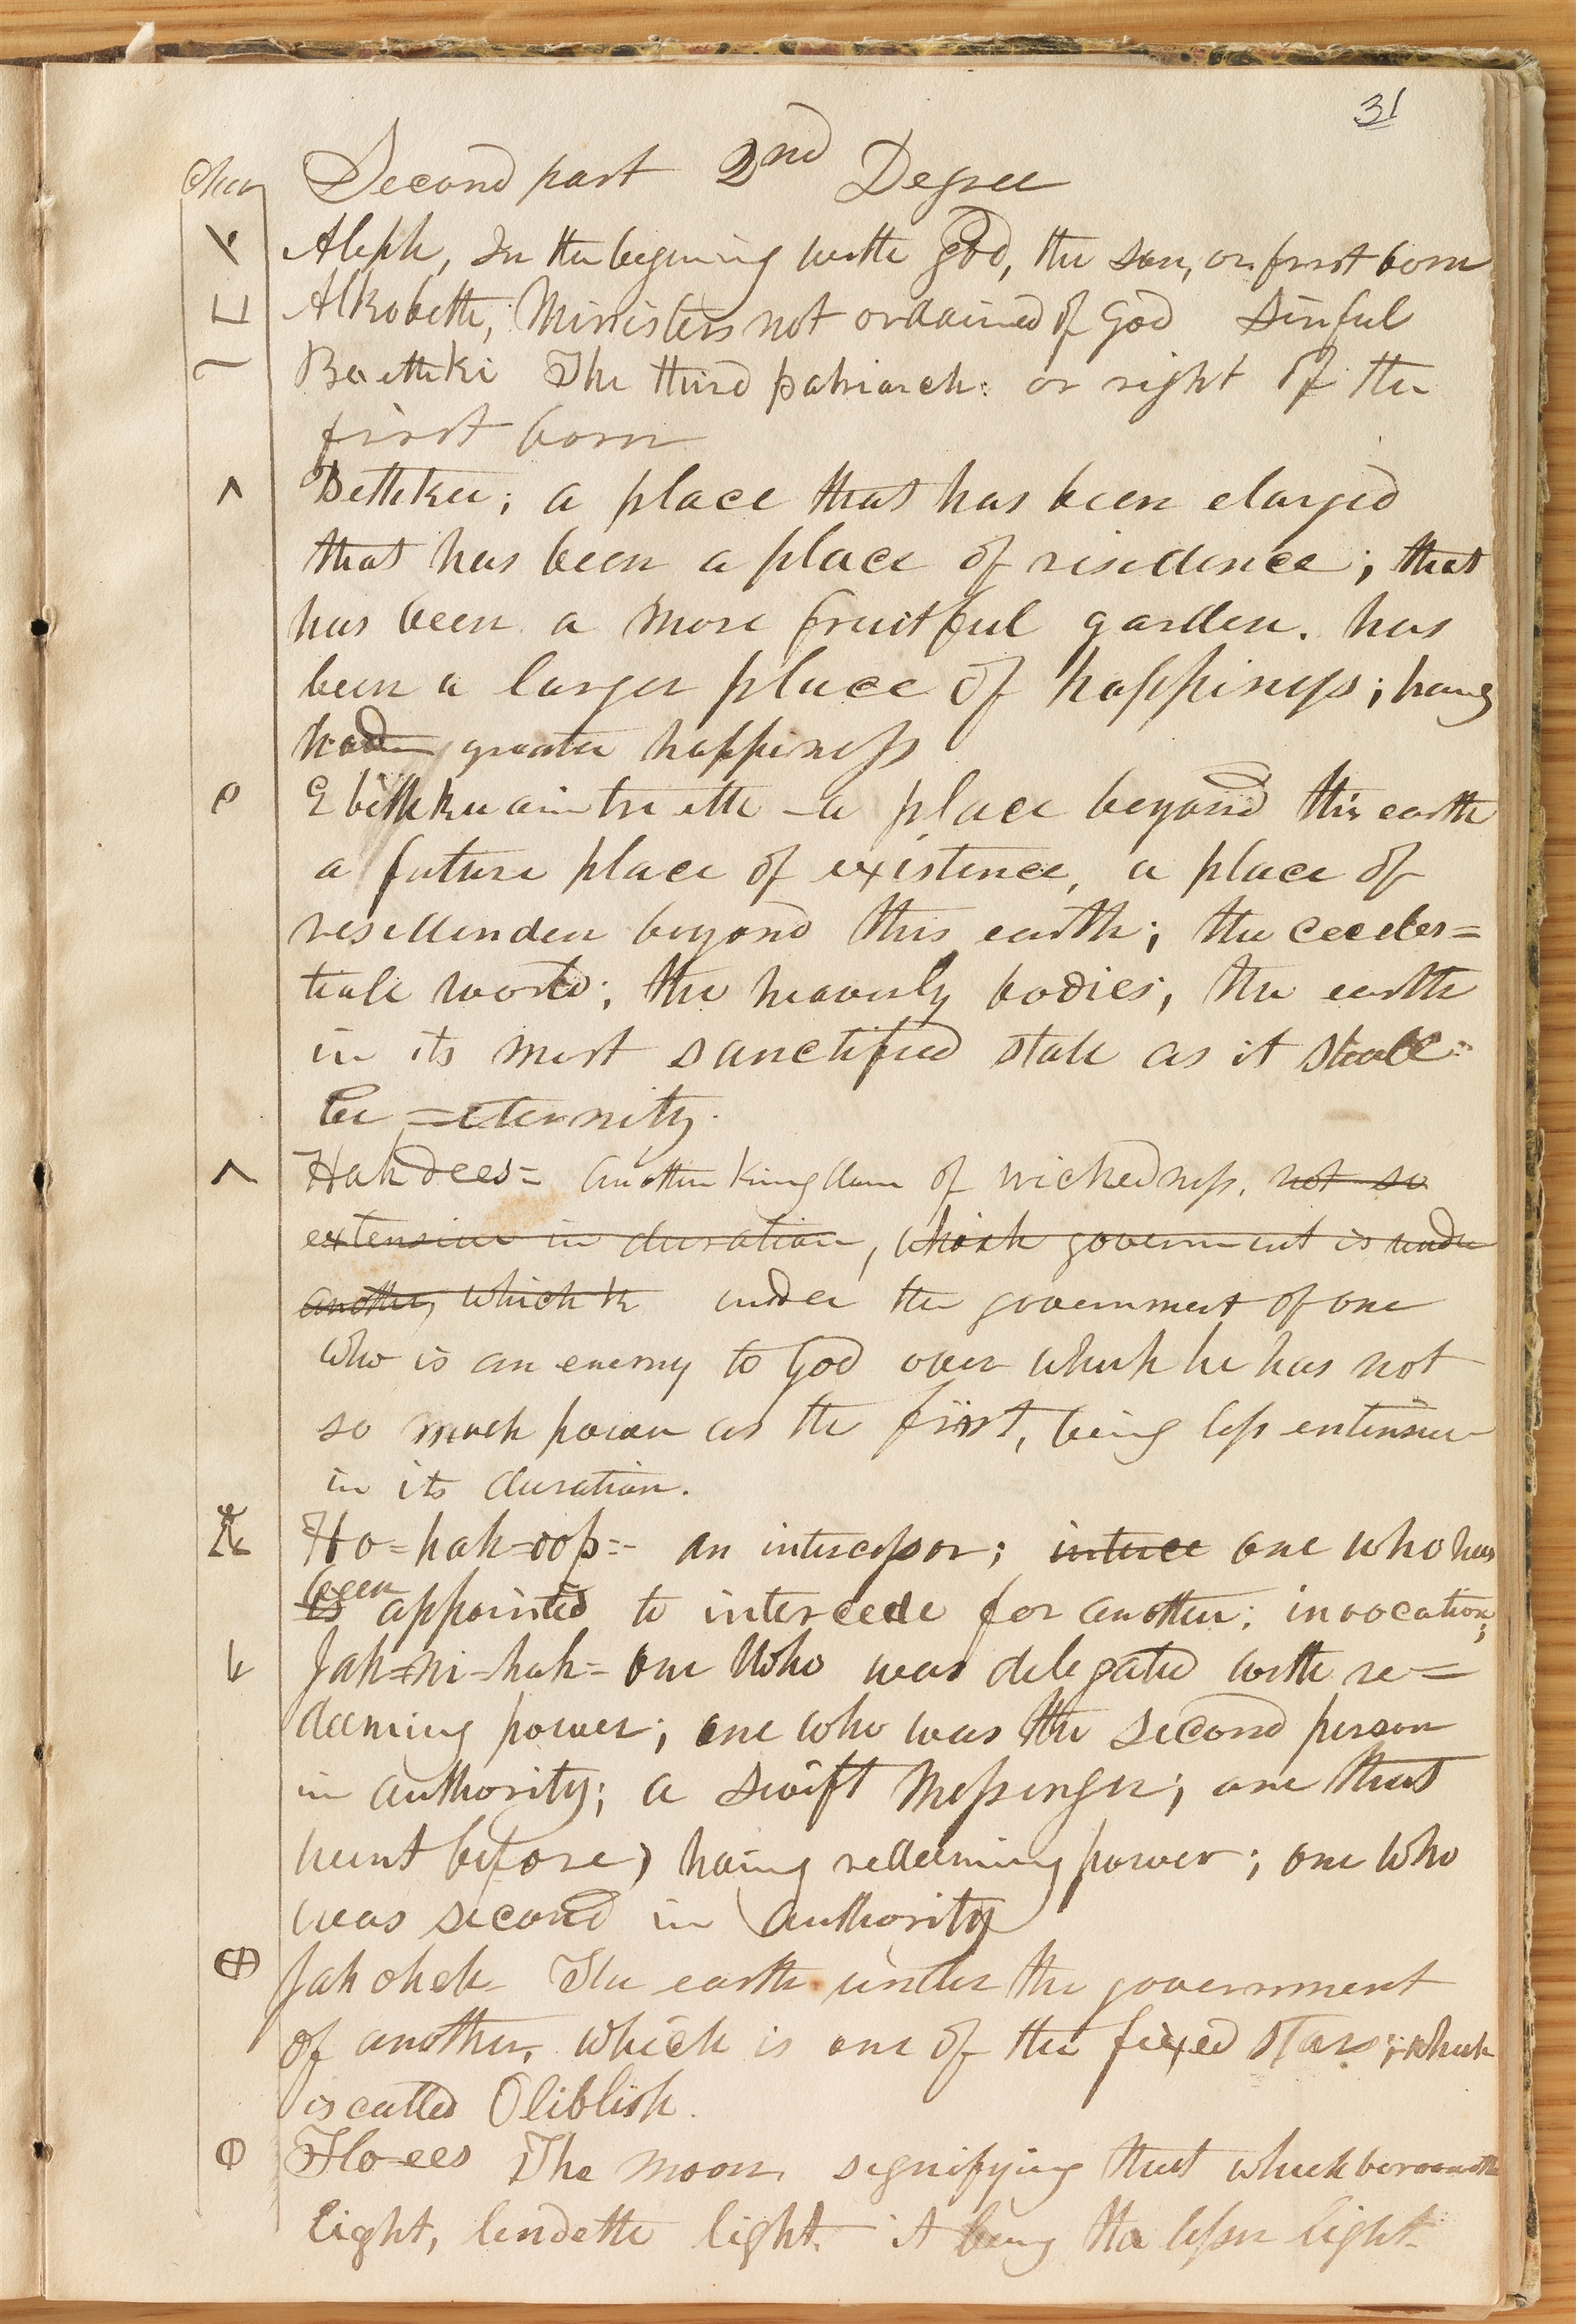 31
Char Second part 2nd Degree
Aleph, In the begining with God, the son, or first born
Alkobeth, Ministers not ordained of God Sinful
Baethki The third patriarch: or right of the
first born
Bethkee; a place that has been elarged
that has been a place of risedence; that
has been a more fruitful garden. has
been a larger place of happiness; haveg
had greater happiness
Ebethkuaintrieth - a place beyond this earth
a future place of existence, a place of
resedenden beyond this earth; the ceeles=
tiale world; the heavenly bodies; the earth
in its most sanctified state as it shall=
be =eternity.
Hahdees= another kingdom of wickedness. not so
extensive in duration, which government is under
another, which h under the government of one
who is an enemy to God over which he has not
so much power as the first, being less extensive
in its duration.
Ho=hah=oop=- an intercessor; interce one who has
is been appointed to intercede for another; invocation;
Jah=ni-hah= one who was delegated with re=
deeming power; one who was the second person
in authority; a swift messenger; one that
went before, haing redeeming power; one who
was second in authority
Jah oheh- The earth under the government
of another, which is one of the fixed stars; which
is called Oliblish.
Flo-ees The moon, signifying that which
Light, lendeth light. it being the lesser light.